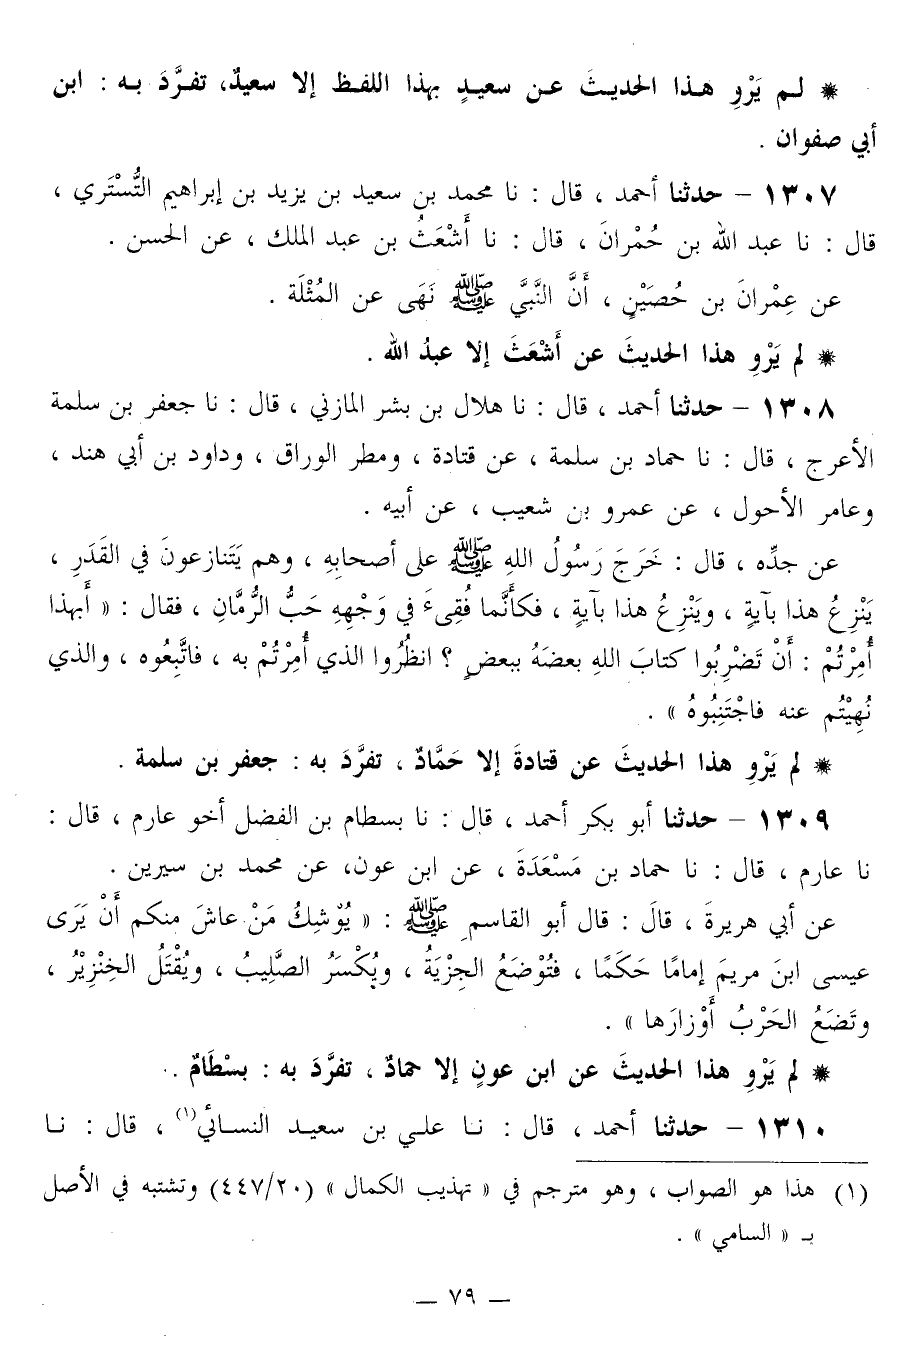 * لـم يَرْوِ هـذا الحديـثَ عـن سعيـدٍ بهـذا اللفـظ إلا سعيـدٌ، تفـرَّدَ بـه : ابن
أبي صفوان .
١٣٠٧ – حدثنا أحمد ، قال : نا محمد بن سعيد بن يزيد بن إبراهيم التُّسْتَري ،
قال : نا عبد الله بن حُمْرانَ ، قال : نا أَشْعَثُ بن عبد الملك ، عن الحسن .
عن عِمْرانَ بن حُصَيْنٍ ، أَنَّ النَّبَيَّ ﷺ نَهَى عن المُثْلَة .
* لم يَرْوِ هذا الحديثَ عن أَشْعَثَ إلا عبدُ الله .
١٣٠٨ – حدثنا أحمد ، قال : نا هلال بن بشر المازني ، قال : نا جعفر بن سلمة
الأعرج ، قال : نا حماد بن سلمة ، عن قتادة ، ومطر الوراق ، وداود بن أبي هند ،
وعامر الأحول ، عن عمرو بن شعيب ، عن أبيه .
عن جدِّه ، قال : خَرَجَ رَسُولُ اللهِ ﷺ على أصحابِهِ ، وهم يَتَنازعونَ في القَدَرِ ،
يَنْزِعُ هذا بآيةٍ ، ويَنْزِعُ هذا بآيةٍ ، فكأَنَّما فُقِىءَ في وَجْهِهِ حَبُّ الرُّمَّانِ ، فقال : « أبهذا
أُمِرْتُمْ : أَنْ تَضْرِبُوا كتابَ اللهِ بعضَهُ ببعضٍ ؟ انظُرُوا الذي أُمِرْتُمْ به ، فاتَّبِعُوه ، والذي
نُهِيْتُم عنه فاجْتَنِبُوهُ » .
* لم يَرْوِ هذا الحديثَ عن قتادةَ إلا حَمَّادٌ ، تفرَّدَ به : جعفر بن سلمة .
١٣٠٩ – حدثنا أبو بكر أحمد ، قال : نا بسطام بن الفضل أخو عارم ، قال :
نا عارم ، قال : نا حماد بن مَسْعَدَةَ ، عن ابن عون، عن محمد بن سيرين .
عن أبي هريرةَ ، قالَ : قال أبو القاسمِ ﷺ : « يُوْشِكُ مَنْ عاشَ منكم أَنْ يَرَى
عيسى ابنَ مريمَ إمامًا حَكَمًا ، فتُوْضَعُ الجِزْيَةُ ، ويُكْسَرُ الصَّلِيبُ ، ويُقْتَلُ الخِنْزِيْرُ ،
وتَضَعُ الحَرْبُ أَوْزارَها » .
* لم يَرْوِ هذا الحديثَ عن ابن عونٍ إلا حمادٌ ، تفرَّدَ به : بسْطَامٌ .
١٣١٠ – حدثنا أحمد ، قال : نـا علـي بن سعيـد النسـائي(١) ، قال : نـا
(١) هذا هو الصواب ، وهو مترجم في « تهذيب الكمال » (٤٤٧/٢٠) وتشتبه في الأصل
بـ « السامي » .
— ٧٩ —